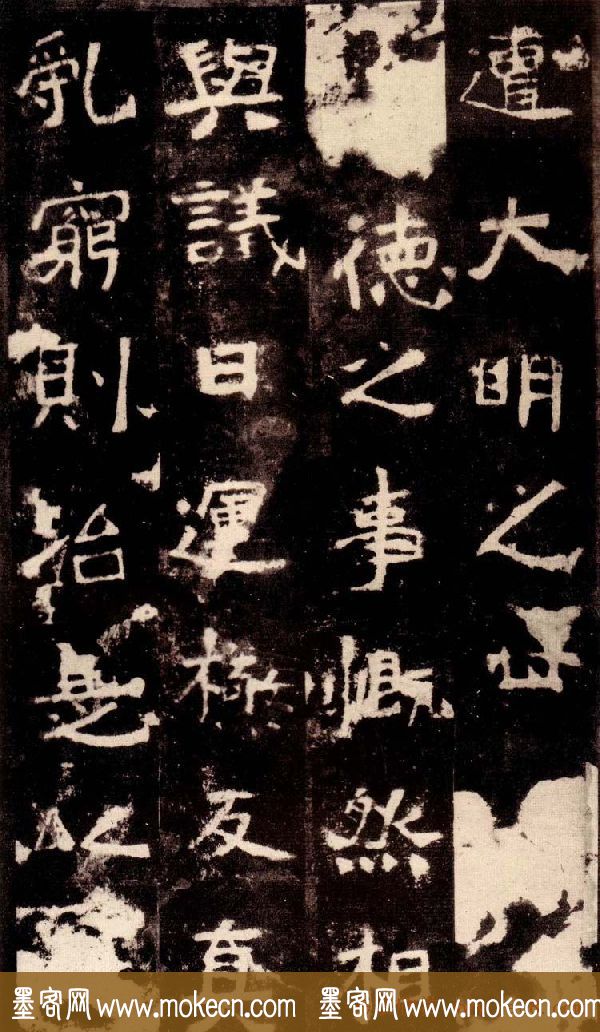 遭大明之世
德之事慨然相
與議曰運極反真
亂窮則治無以
墨客网 www.mokecn.com 墨客网 www.mokecn.com